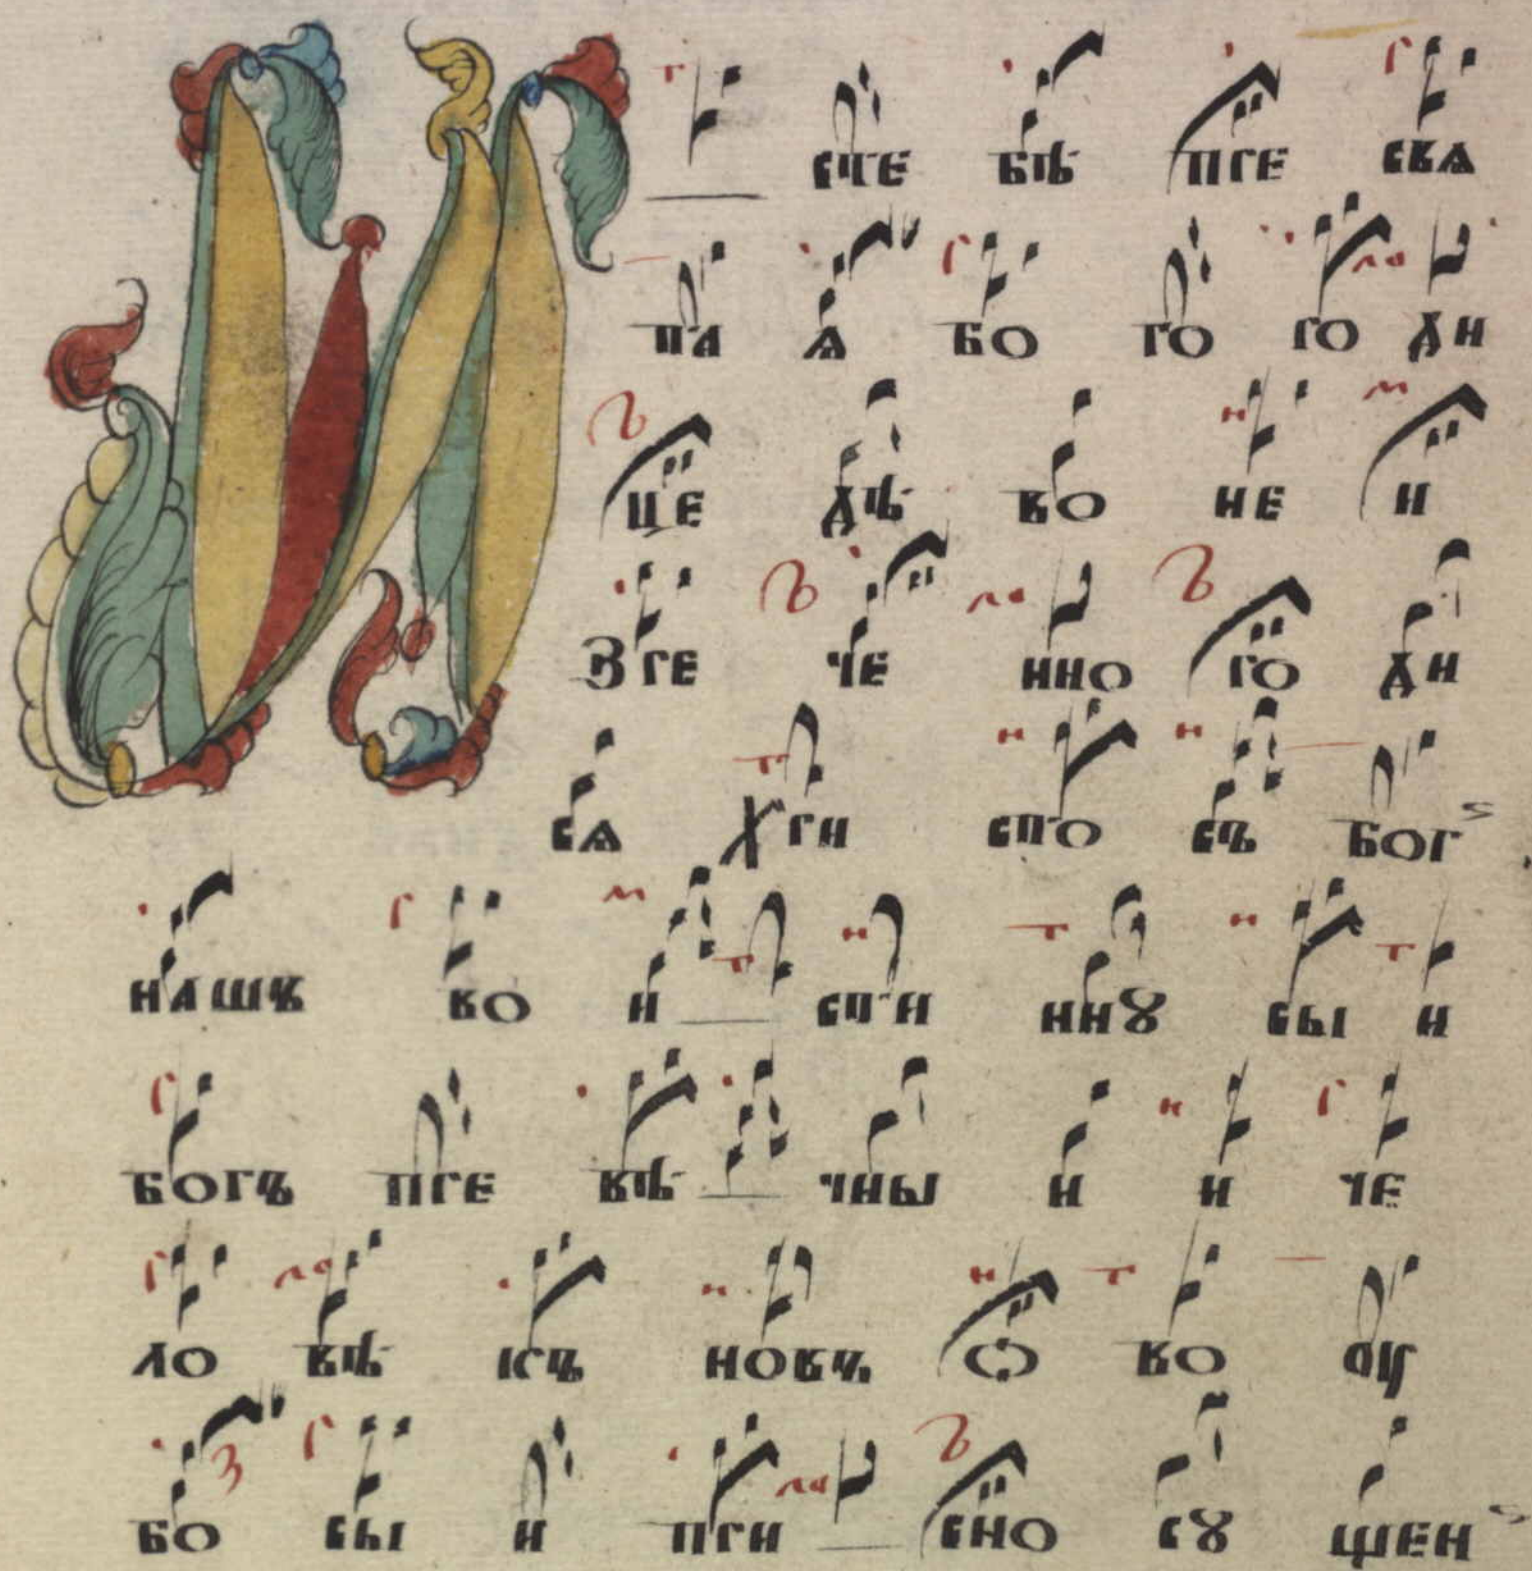 И сте бѣ пре свѧ
та ѧ бо го ро ди
це дѣ во не и
зре че нно ро ди
сѧ хри сто съ бог
нашъ во и сти ннꙋ сы и
богъ пре вѣ чны и и че
ло вѣ къ новъ ѻ во оу
бо сы и при сно сꙋ щен